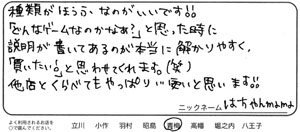 種類がほうふなのがいいです!!
「どんなゲームなのかなあ?」と思った時に
説明が書いてあるのが本当に解かりやすく、
「買いたい!」と思わせてくれます。(笑)
他店とくらべてもやっぱりいい使いと思います!!
ニックネーム はちやんmama
よく利用されるお店を○で囲んでください。
立川 小作 羽村 昭島 青梅 高幡 堀之内 八王子